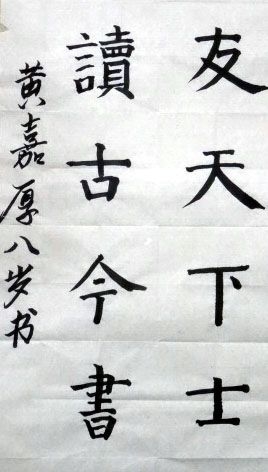 友天下士
讀古今書
黄嘉厚八岁书